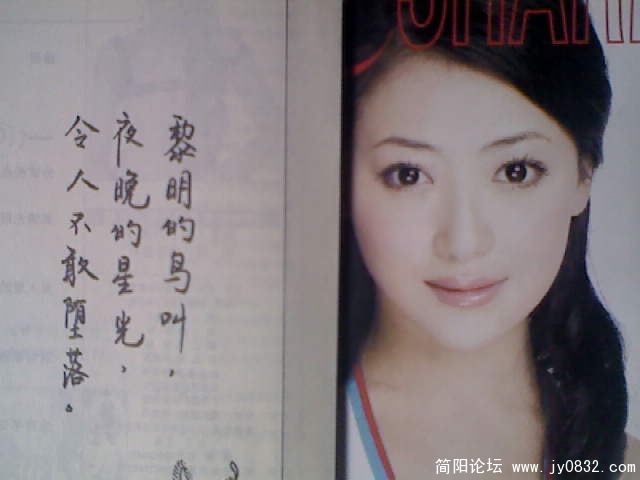 黎明的鸟叫，
夜晚的星光，
令人不敢堕落。
简阳论坛 www.jy0832.com